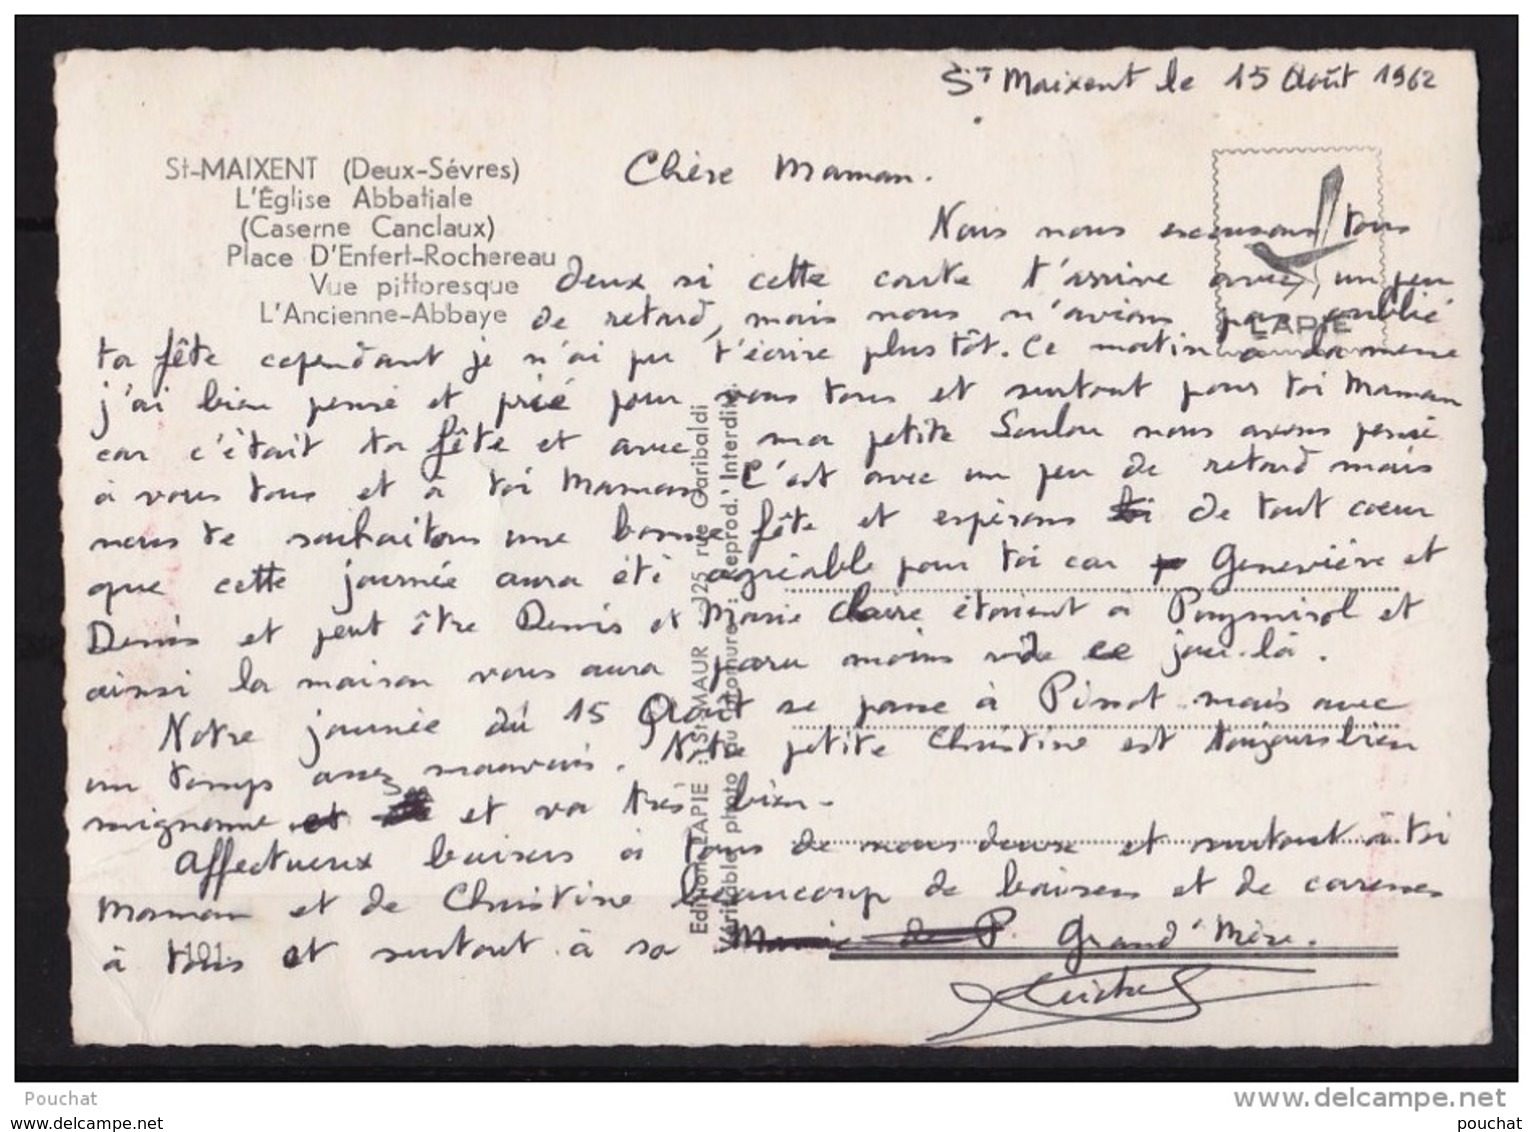 St Maixent le 15 Août 1962
St-MAIXENT (Deux-Sèvres)
L'Église Abbatiale
(Caserne Canclaux)
Place D'Enfert-Rochereau
Vue pittoresque
L'Ancienne-Abbaye
Chère Maman.
Nous nous excusons tous
deux si cette carte t'arrive avec un peu
de retard, mais nous n'avions pas oublié
ta fête cependant je n'ai pu t'écrire plus tôt. Ce matin à la messe
j'ai bien pensé et prié pour vous tous et surtout pour toi Maman
car c'était ta fête et avec ma petite Loulou nous avons pensé
à vous tous et à toi Maman C'est avec un peu de retard mais
nous te souhaitons une bonne fête et espérons de tout coeur
que cette journée aura été agréable pour toi car Geneviève et
Denis et peut être Denis et Marie Claire étaient à Puymirol et
ainsi la maison vous aura paru moins vide ce jour là.
Notre journée du 15 Août se passe à Pinot mais avec
un temps assez mauvais. Notre petite Christine est toujours bien
mignonne et et va très bien.
Affectueux baisers à tous de nous deux et surtout à toi
Maman et de Christine beaucoup de baisers et de caresses
à tous et surtout à sa Mamie de P. Grand'Mère.
Michel
LAPIE
Editions LAPIE : St-MAUR 125 rue Garibaldi
Véritable photo au bromure : Reprod. Interdite.
101
Pouchat
www.delcampe.net
www.delcampe.net
pouchat